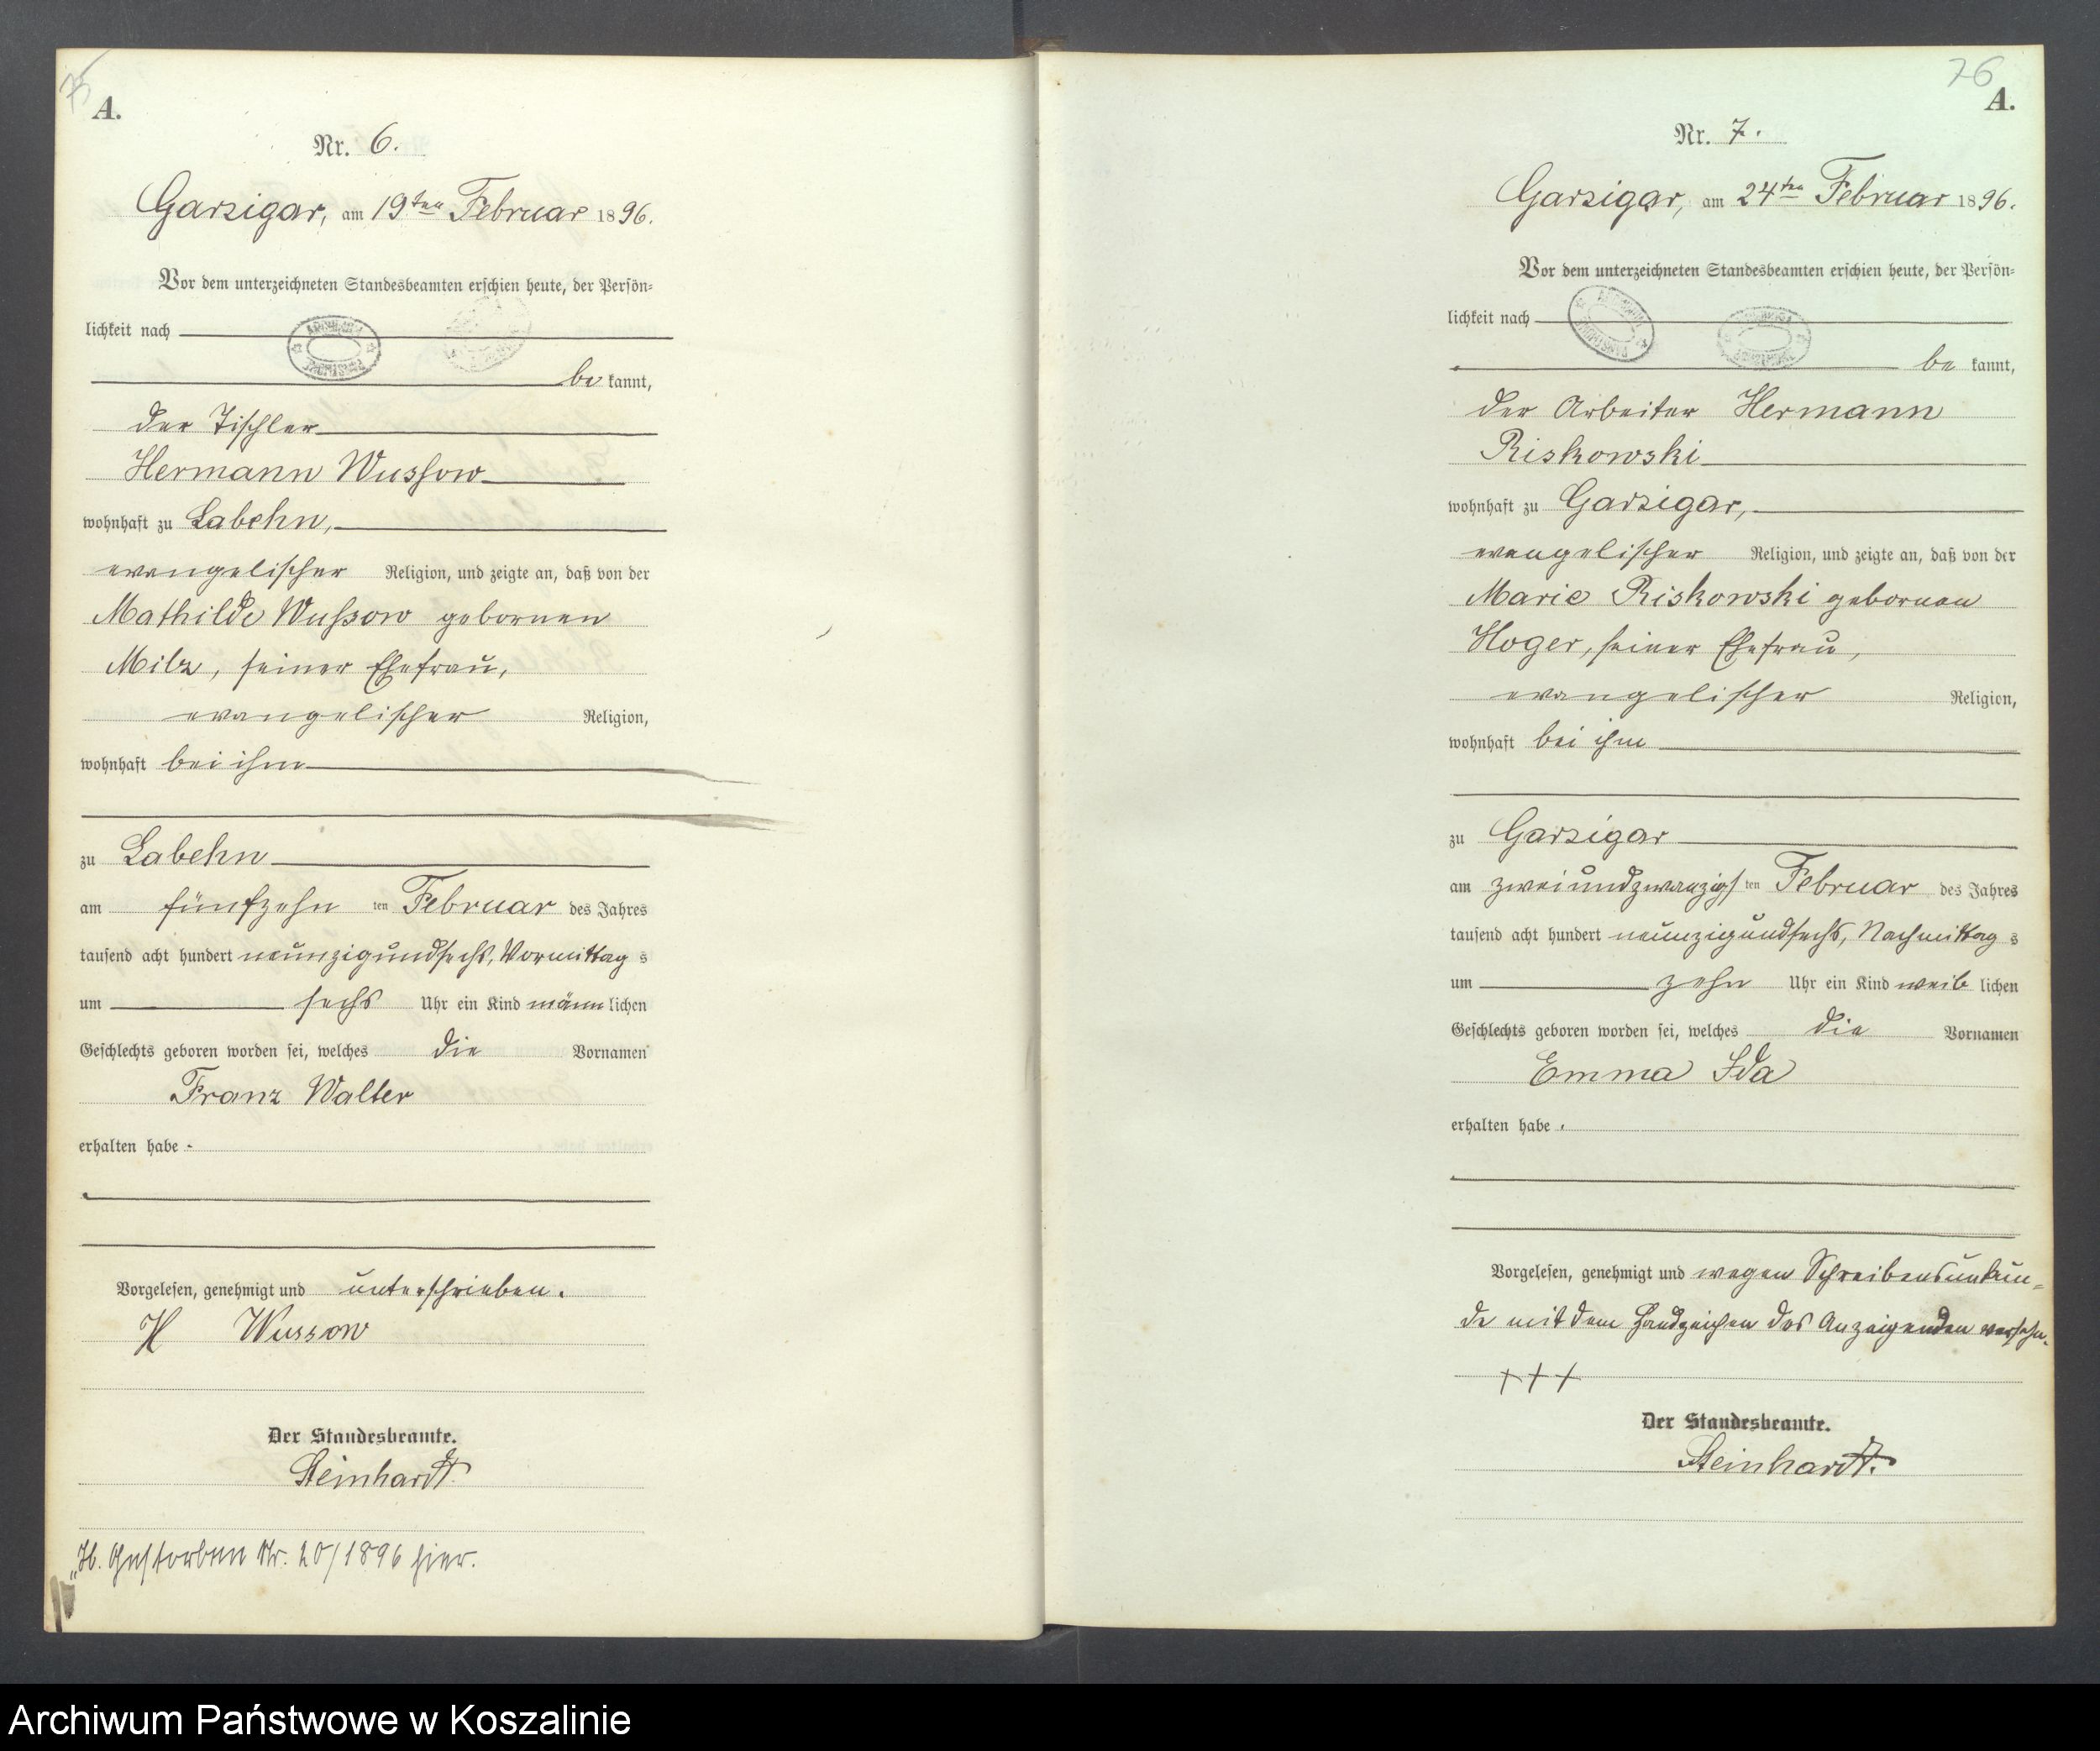 75
A.
Nr. 6.
Garzigar, am 19ten Februar 1896.
Vor dem unterzeichneten Standesbeamten erschien heute, der Persön-
lichkeit nach
be kannt,
der Tischler
Hermann Wussow
wohnhaft zu Labehn,
evangelischer Religion, und zeigte an, daß von der
Mathilde Wußow gebornen
Milz, seiner Ehefrau,
evangelischer Religion,
wohnhaft bei ihm
zu Labehn
am fünfzehn ten Februar des Jahres
tausend acht hundert neunzigundsechs, Vormittag s
um sechs Uhr ein Kind männ lichen
Geschlechts geboren worden sei, welches die Vornamen
Franz Walter
erhalten habe.
Vorgelesen, genehmigt und unterschrieben.
H Wussow
Der Standesbeamte.
Steinhardt.
Gestorben Nr. 20/1896 hier.
76
A.
Nr. 7.
Garzigar, am 24ten Februar 1896.
Vor dem unterzeichneten Standesbeamten erschien heute, der Persön-
lichkeit nach
be kannt,
der Arbeiter Hermann
Riskowski
wohnhaft zu Garzigar,
evangelischer Religion, und zeigte an, daß von der
Marie Riskowski gebornen
Hoger, seiner Ehefrau,
evangelischer Religion,
wohnhaft bei ihm
zu Garzigar
am zweiundzwanzigs ten Februar des Jahres
tausend acht hundert neunzigundsechs, Nachmittag s
um zehn Uhr ein Kind weib lichen
Geschlechts geboren worden sei, welches die Vornamen
Emma Ida
erhalten habe.
Vorgelesen, genehmigt und wegen Schreibensunkun-
de mit dem Handzeichen des Anzeigenden versehn.
+++
Der Standesbeamte.
Steinhardt.
Archiwum Państwowe w Koszalinie